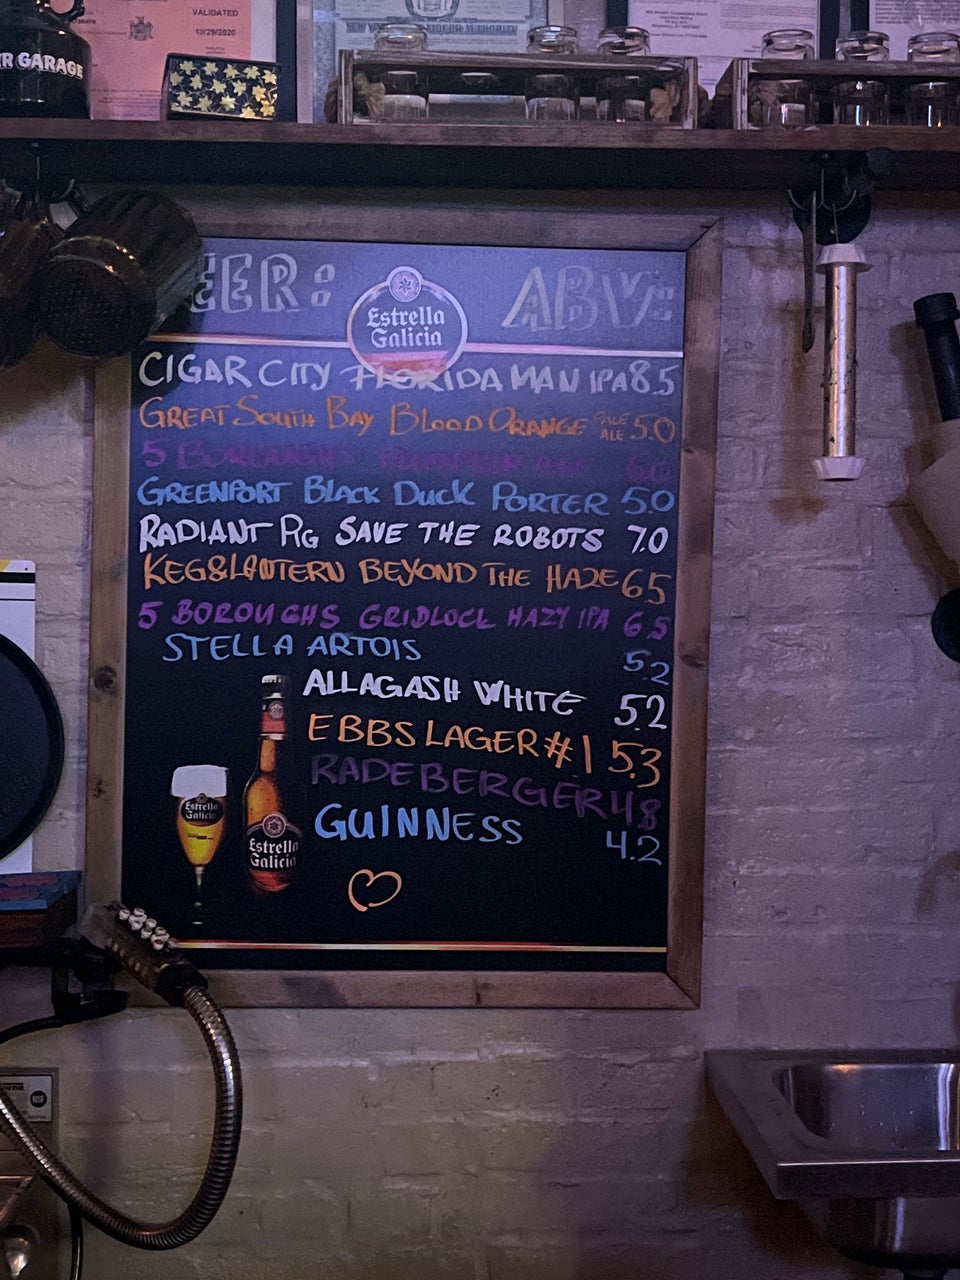 VALIDATED
10/29/2020
R GARAGE
EER: ABV:
Estrella
Galicia
CIGAR CITY FLORIDA MAN IPA 8.5
GREAT SOUTH BAY BLOOD ORANGE PALE ALE 5.0
5 BOROUGHS PUMPKIN ALE 6.0
GREENPORT BLACK DUCK PORTER 5.0
RADIANT PIG SAVE THE ROBOTS 7.0
KEG&LANTERN BEYOND THE HAZE 6.5
5 BOROUGHS GRIDLOCK HAZY IPA 6.5
STELLA ARTOIS 5.2
ALLAGASH WHITE 5.2
EBBS LAGER #1 5.3
RADEBERGER 4.8
GUINNESS 4.2
Estrella
Galicia
Estrella
Galicia